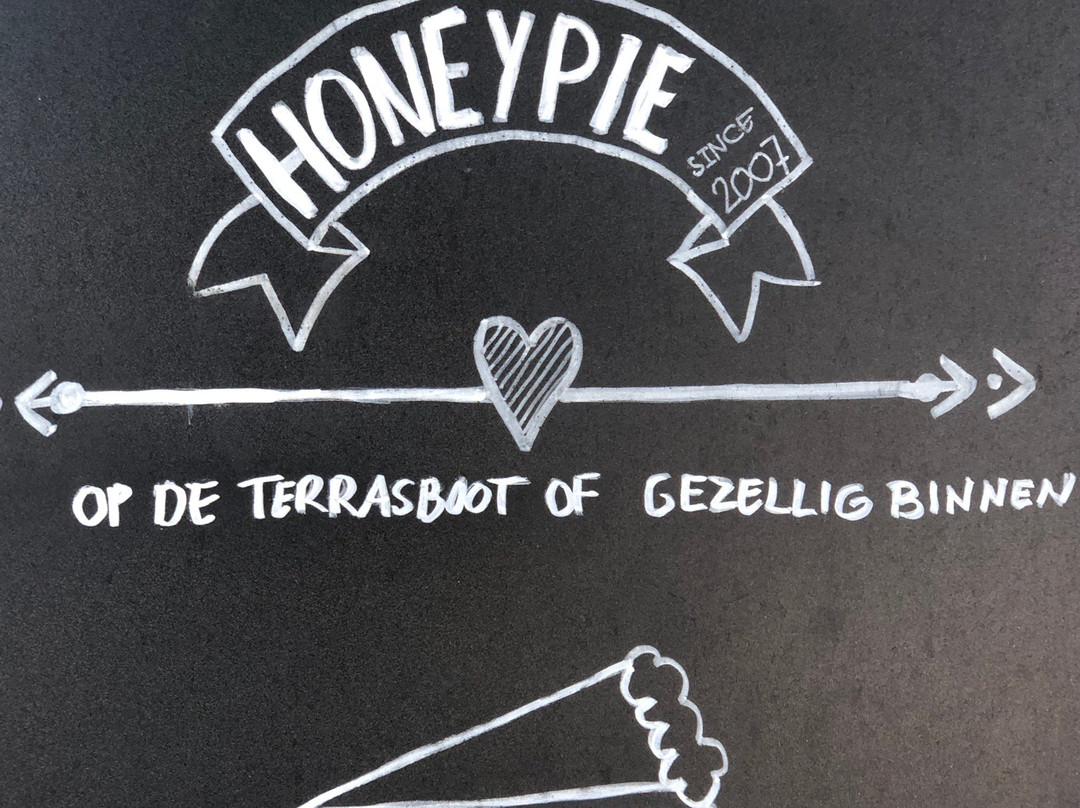 HONEYPIE
SINCE
2007
OP DE TERRASBOOT OF GEZELLIG BINNEN